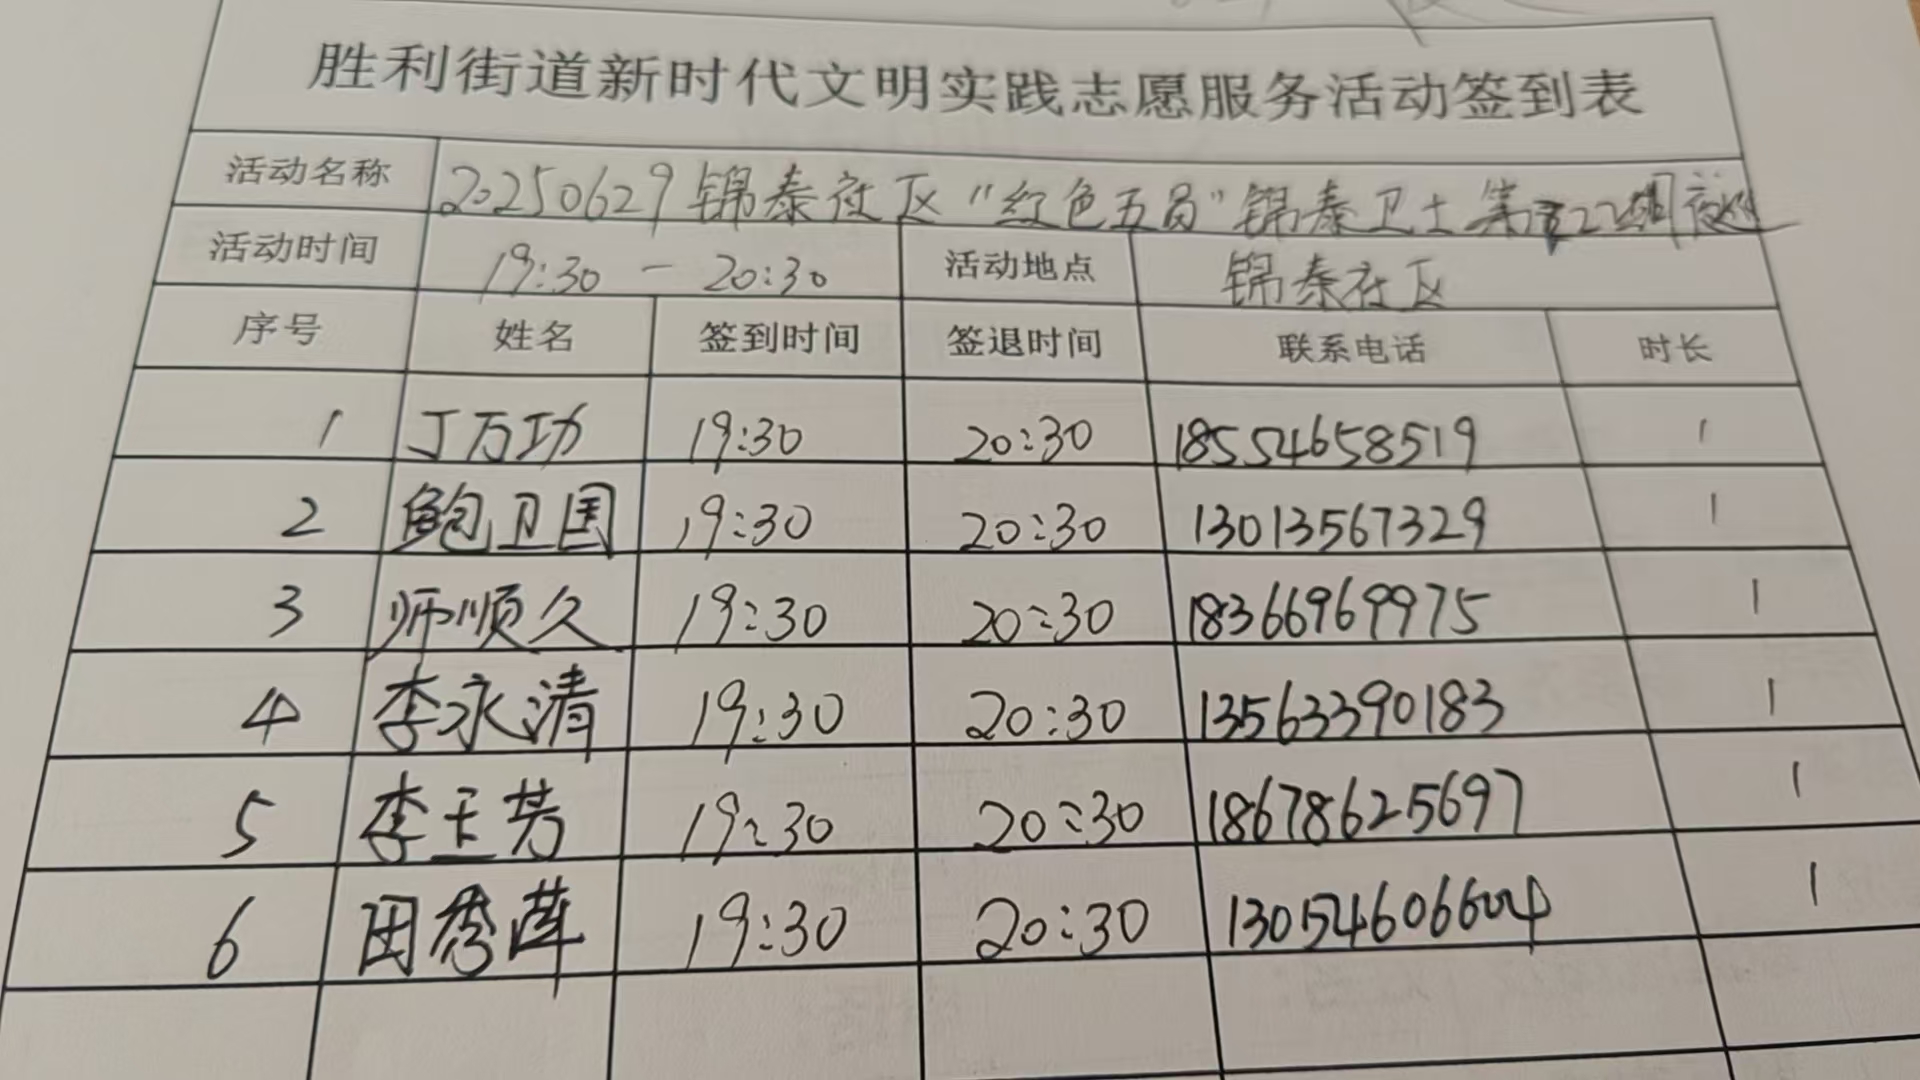 胜利街道新时代文明实践志愿服务活动签到表
活动名称 20250629锦泰社区“红色五员”锦泰卫士第22周夜巡
活动时间 19:30 — 20:30 活动地点 锦泰社区
序号 姓名 签到时间 签退时间 联系电话 时长
1 丁万功 19:30 20:30 18554658519 1
2 鲍卫国 19:30 20:30 13013567329 1
3 师顺久 19:30 20:30 18366969975 1
4 李永清 19:30 20:30 13563390183 1
5 李玉芳 19:30 20:30 18678625697 1
6 田秀萍 19:30 20:30 13054606604 1